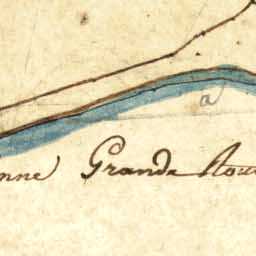 a
nne Grande Rou